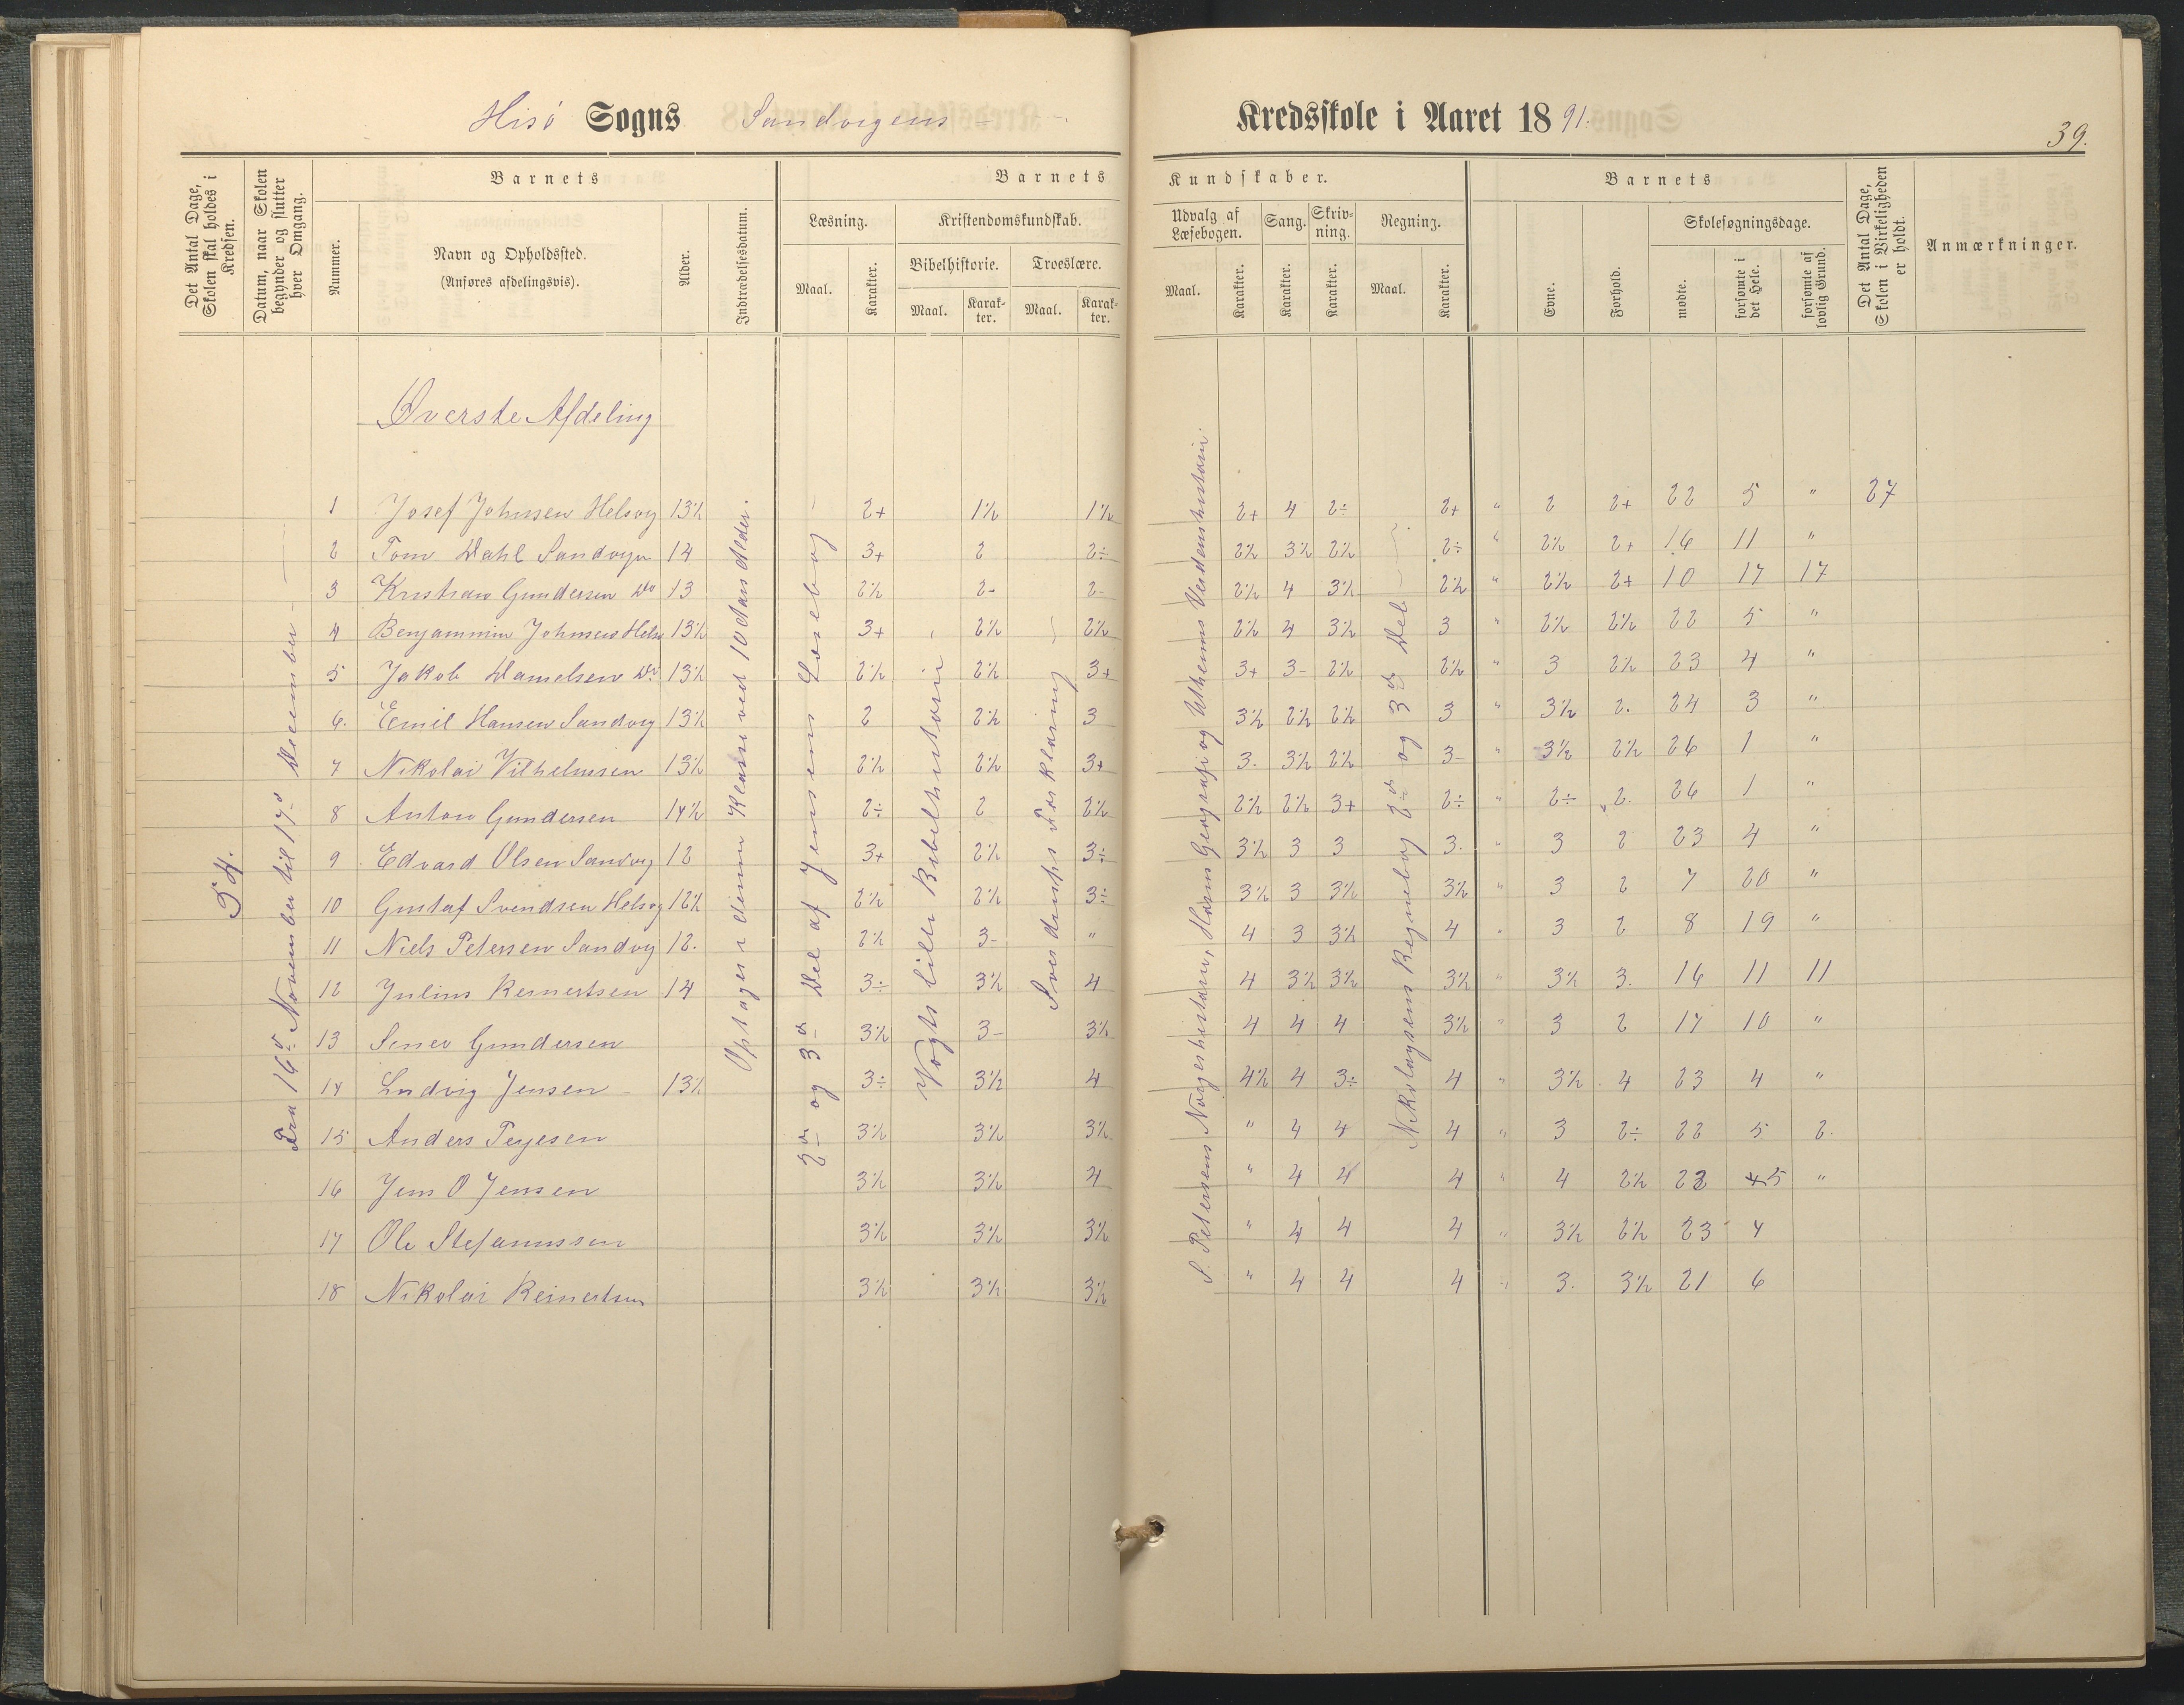 Hisö Sogns Sandvigens Kredsskole i Aaret 1891.
39.
Det Antal Dage, Skolen skal holdes i Kredsen.
Datum, naar Skolen begynder og slutter hver Omgang.
Barnets
Nummer.
Navn og Opholdssted.
(Anføres afdelingsvis).
Alder.
Indtrædelsesdatum.
Barnets Kundskaber.
Læsning.
Maal.
Karakter.
Kristendomskundskab.
Bibelhistorie.
Maal.
Karakter.
Troeslære.
Maal.
Karakter.
Udvalg af Læsebogen.
Maal.
Karakter.
Sang.
Karakter.
Skrivning.
Karakter.
Regning.
Maal.
Karakter.
Barnets
Evne.
Forhold.
Skolesøgningsdage.
mødte.
forsømte i det Hele.
forsømte af lovlig Grund.
Det Antal Dage, Skolen i Virkeligheden er holdt.
Anmærkninger.
Øverste Afdeling
54.
Fra 16de November til 17de December
Optages i denne Klasse ved 10 Aars Alder.
2den og 3die Del af Jensens Læsebog
Vogts lille Bibelhistorie
Sverdrups Forklaring
S. Petersens Norgeshistorie, Horns Geografi og Utheims Verdenshistorie.
Nikolaysens Regnebog 2den og 3die Del
1 Josef Johnsen Helsvg 13½ 2+ 1½ 1½ 2+ 4 2÷ 2+ " 2 2+ 22 5 " 27
2 Tom Dahl Sandvgn 14 3+ 2 2÷ 2½ 3½ 2½ 2÷ " 2½ 2+ 16 11 "
3 Kristian Gundersen Do 13 2½ 2- 2- 2½ 4 3½ 2½ " 2½ 2+ 10 17 17
4 Benjammin Johnsen Helsv 13½ 3+ 2½ 2½ 2½ 4 3½ 3 " 2½ 2½ 22 5 "
5 Jakob Danielsen Do 13½ 2½ 2½ 3+ 3+ 3- 2½ 2½ " 3 2½ 23 4 "
6. Emil Hansen Sandvig 13½ 2 2½ 3 3½ 2½ 2½ 3 " 3½ 2. 24 3 "
7 Nikolai Vilhelmsen 13½ 2½ 2½ 3+ 3. 3½ 2½ 3- " 3½ 2½ 26 1 "
8 Anton Gundersen 14½ 2÷ 2 2½ 2½ 2½ 3+ 2÷ " 2÷ 2. 26 1 "
9 Edvard Olsen Sandvg 12 3+ 2½ 3÷ 3½ 3 3 3. " 3 2 23 4 "
10 Gustaf Svendsen Helsvg 12½ 2½ 2½ 3÷ 3½ 3 3½ 3½ " 3 2 7 20 "
11 Niels Petersen Sandvg 12. 2½ 3- " 4 3 3½ 4 " 3 2 8 19 "
12 Julius Reinertsen 14 3÷ 3½ 4 4 3½ 3½ 3½ " 3½ 3. 16 11 11
13 Gundersen 3½ 3- 3½ 4 4 4 3½ " 3 2 17 10 "
14 Ludvig Jensen 13½ 3÷ 3½ 4 4½ 4 3÷ 4 " 3½ 4 23 4 "
15 Anders Terjesen 3½ 3½ 3½ " 4 4 4 " 3 2÷ 22 5 2.
16 Jens O Jensen 3½ 3½ 4 " 4 4 4 " 4 2½ 22 5 "
17 Ole Stefanussen 3½ 3½ 3½ " 4 4 4 " 3½ 2½ 23 4
18 Nikolai Reinertsen 3½ 3½ 3½ " 4 4 4 " 3. 3½ 21 6